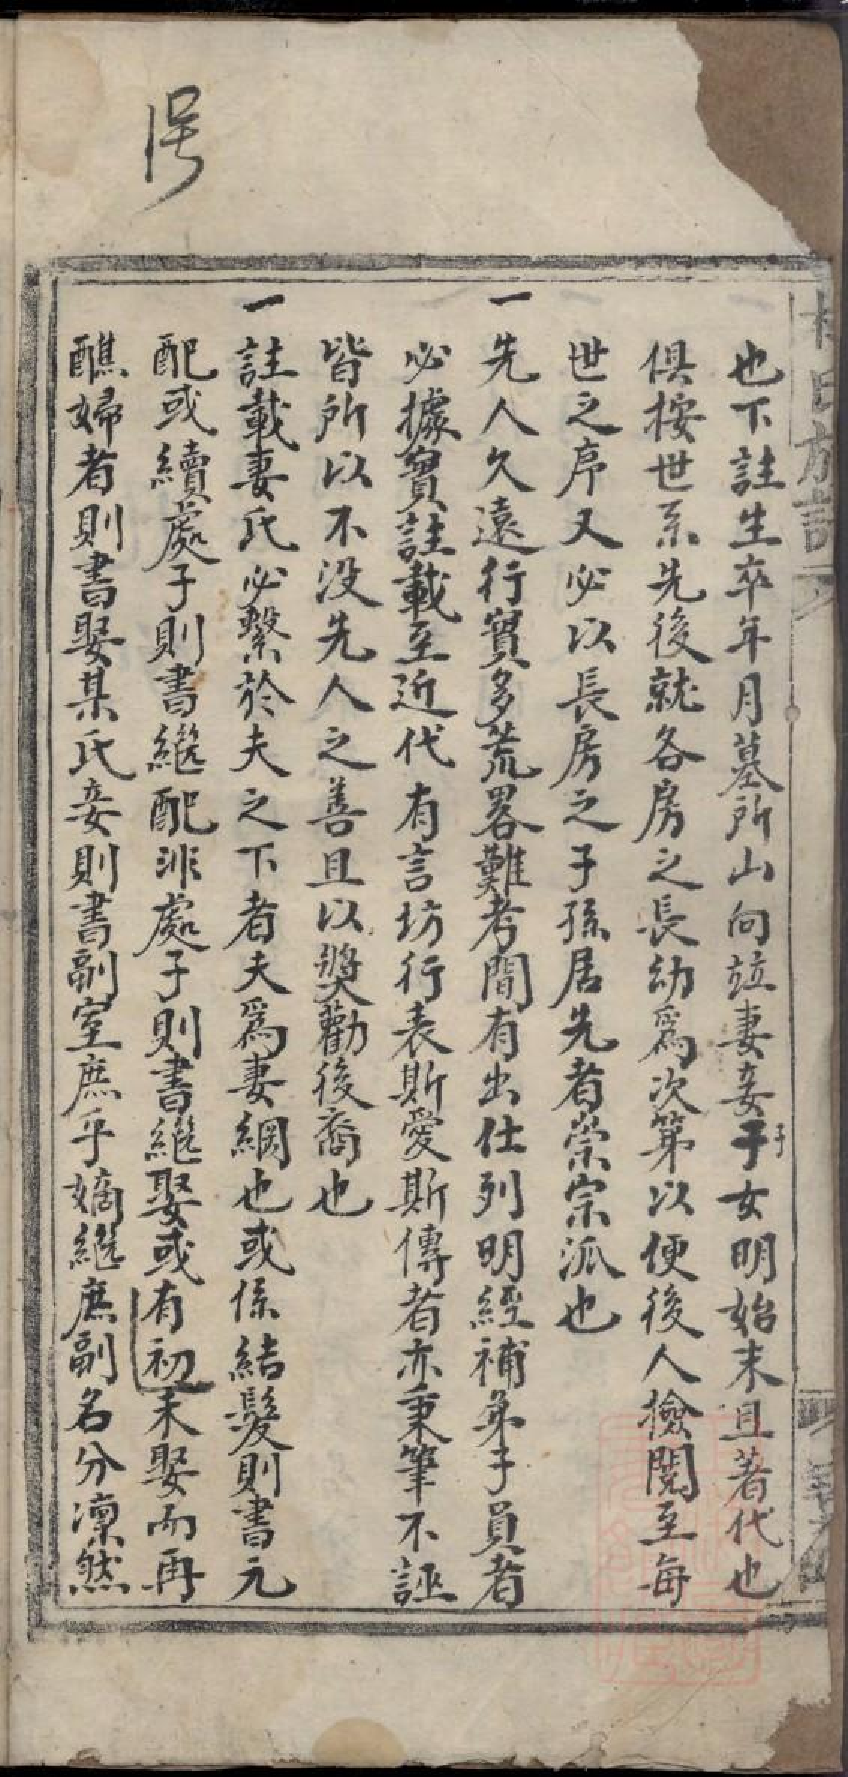 也下註生卒年月墓所山向竝妻妾子女明始末且著代也
俱按世系先後就各房之長幼爲次第以便後人撿閱至每
世之序又必以長房之子孫居先者崇宗派也
一先人久遠行實多荒畧難考間有出仕列明經補弟子員者
必據實註載至近代有言坊行表斯愛斯傳者亦秉筆不誣
皆所以不没先人之善且以獎勸後裔也
一註載妻氏必繫於夫之下者夫爲妻綱也或係結髮則書元
配或續處子則書繼配非處子則書繼娶或有初未娶而再
醮婦者則書娶某氏妾則書副室庶乎嫡繼庶副名分凛然